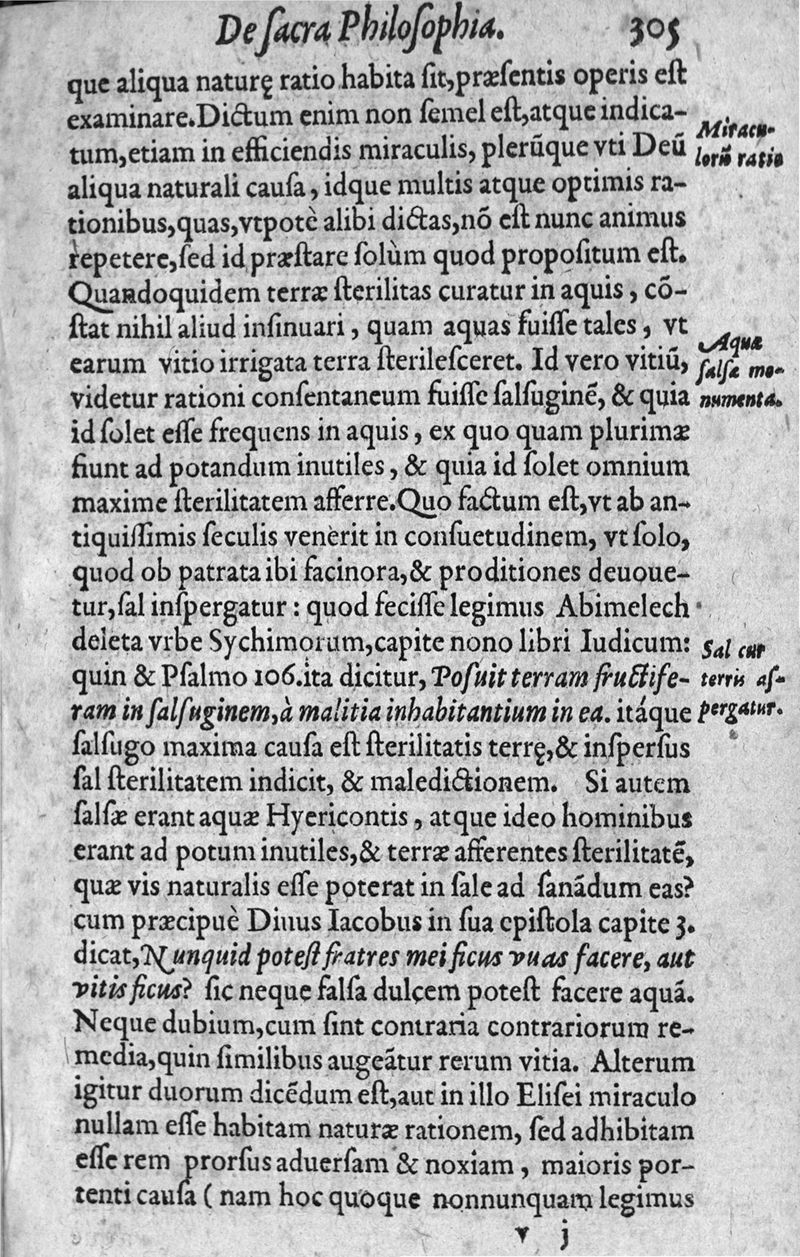 De ſacra Philoſophia. 305
que aliqua naturę ratio habita ſit,præſentis operis eſt
examinare.Dictum enim non ſemel eſt,atque indica-
tum,etiam in efficiendis miraculis, plerũque vti Deũ
aliqua naturali cauſa, idque multis atque optimis ra-
tionibus,quas,vtpotè alibi dictas,nõ eſt nunc animus
repetere,ſed id præſtare ſolùm quod propoſitum eſt.
Quandoquidem terræ ſterilitas curatur in aquis, cõ-
ſtat nihil aliud inſinuari, quam aquas fuiſſe tales, vt
earum vitio irrigata terra ſterileſceret. Id vero vitiũ,
videtur rationi conſentaneum fuiſſe ſalſuginẽ, & quia
id ſolet eſſe frequens in aquis, ex quo quam plurimæ
fiunt ad potandum inutiles, & quia id ſolet omnium
maxime ſterilitatem afferre.Quo factum eſt,vt ab an-
tiquiſſimis ſeculis venèrit in conſuetudinem, vt ſolo,
quod ob patrata ibi facinora,& proditiones deuoue-
tur,ſal inſpergatur: quod feciſſe legimus Abimelech
deleta vrbe Sychimorum,capite nono libri Iudicum:
quin & Pſalmo 106.ita dicitur, Poſuit terram fructife-
ram in ſalſuginem,à malitia inhabitantium in ea. itáque
ſalſugo maxima cauſa eſt ſterilitatis terrę,& inſperſus
ſal ſterilitatem indicit, & maledictionem. Si autem
ſalſæ erant aquæ Hyericontis, atque ideo hominibus
erant ad potum inutiles,& terræ afferentes ſterilitatẽ,
quæ vis naturalis eſſe poterat in ſale ad ſanãdum eas?
cum præcipuè Diuus Iacobus in ſua epiſtola capite 3.
dicat,Nunquid poteſt fratres mei ficus vuas facere, aut
vitis ficus? ſic neque ſalſa dulcem poteſt facere aquã.
Neque dubium,cum ſint contraria contrariorum re-
media,quin ſimilibus augeãtur rerum vitia. Alterum
igitur duorum dicẽdum eſt,aut in illo Eliſei miraculo
nullam eſſe habitam naturæ rationem, ſed adhibitam
eſſe rem prorſus aduerſam & noxiam, maioris por-
tenti cauſa (nam hoc quoque nonnunquam legimus
v j
Miracu-
lorũ ratio
Aquæ
ſalſæ mo-
numenta.
Sal cur
terris aſ-
pergatur.